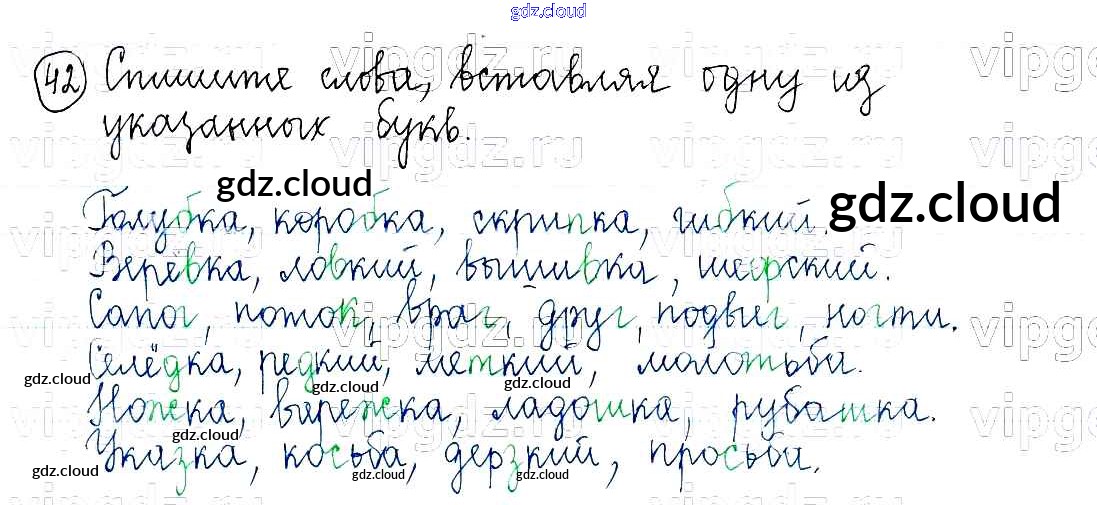 gdz.cloud
42 Спишите слова, вставляя одну из
указанных букв.
vipgdz.ru
gdz.cloud
gdz.cloud
Голубка, коробка, скрипка, гибкий.
Верёвка, ловкий, вышивка, шефский.
Сапог, поток, враг, друг, подвиг, ногти.
Селёдка, редкий, меткий, молотьба.
gdz.cloud gdz.cloud gdz.cloud
Ножка, варежка, ладошка, рубашка.
gdz.cloud
Указка, косьба, дерзкий, просьба.
gdz.cloud gdz.cloud gdz.cloud